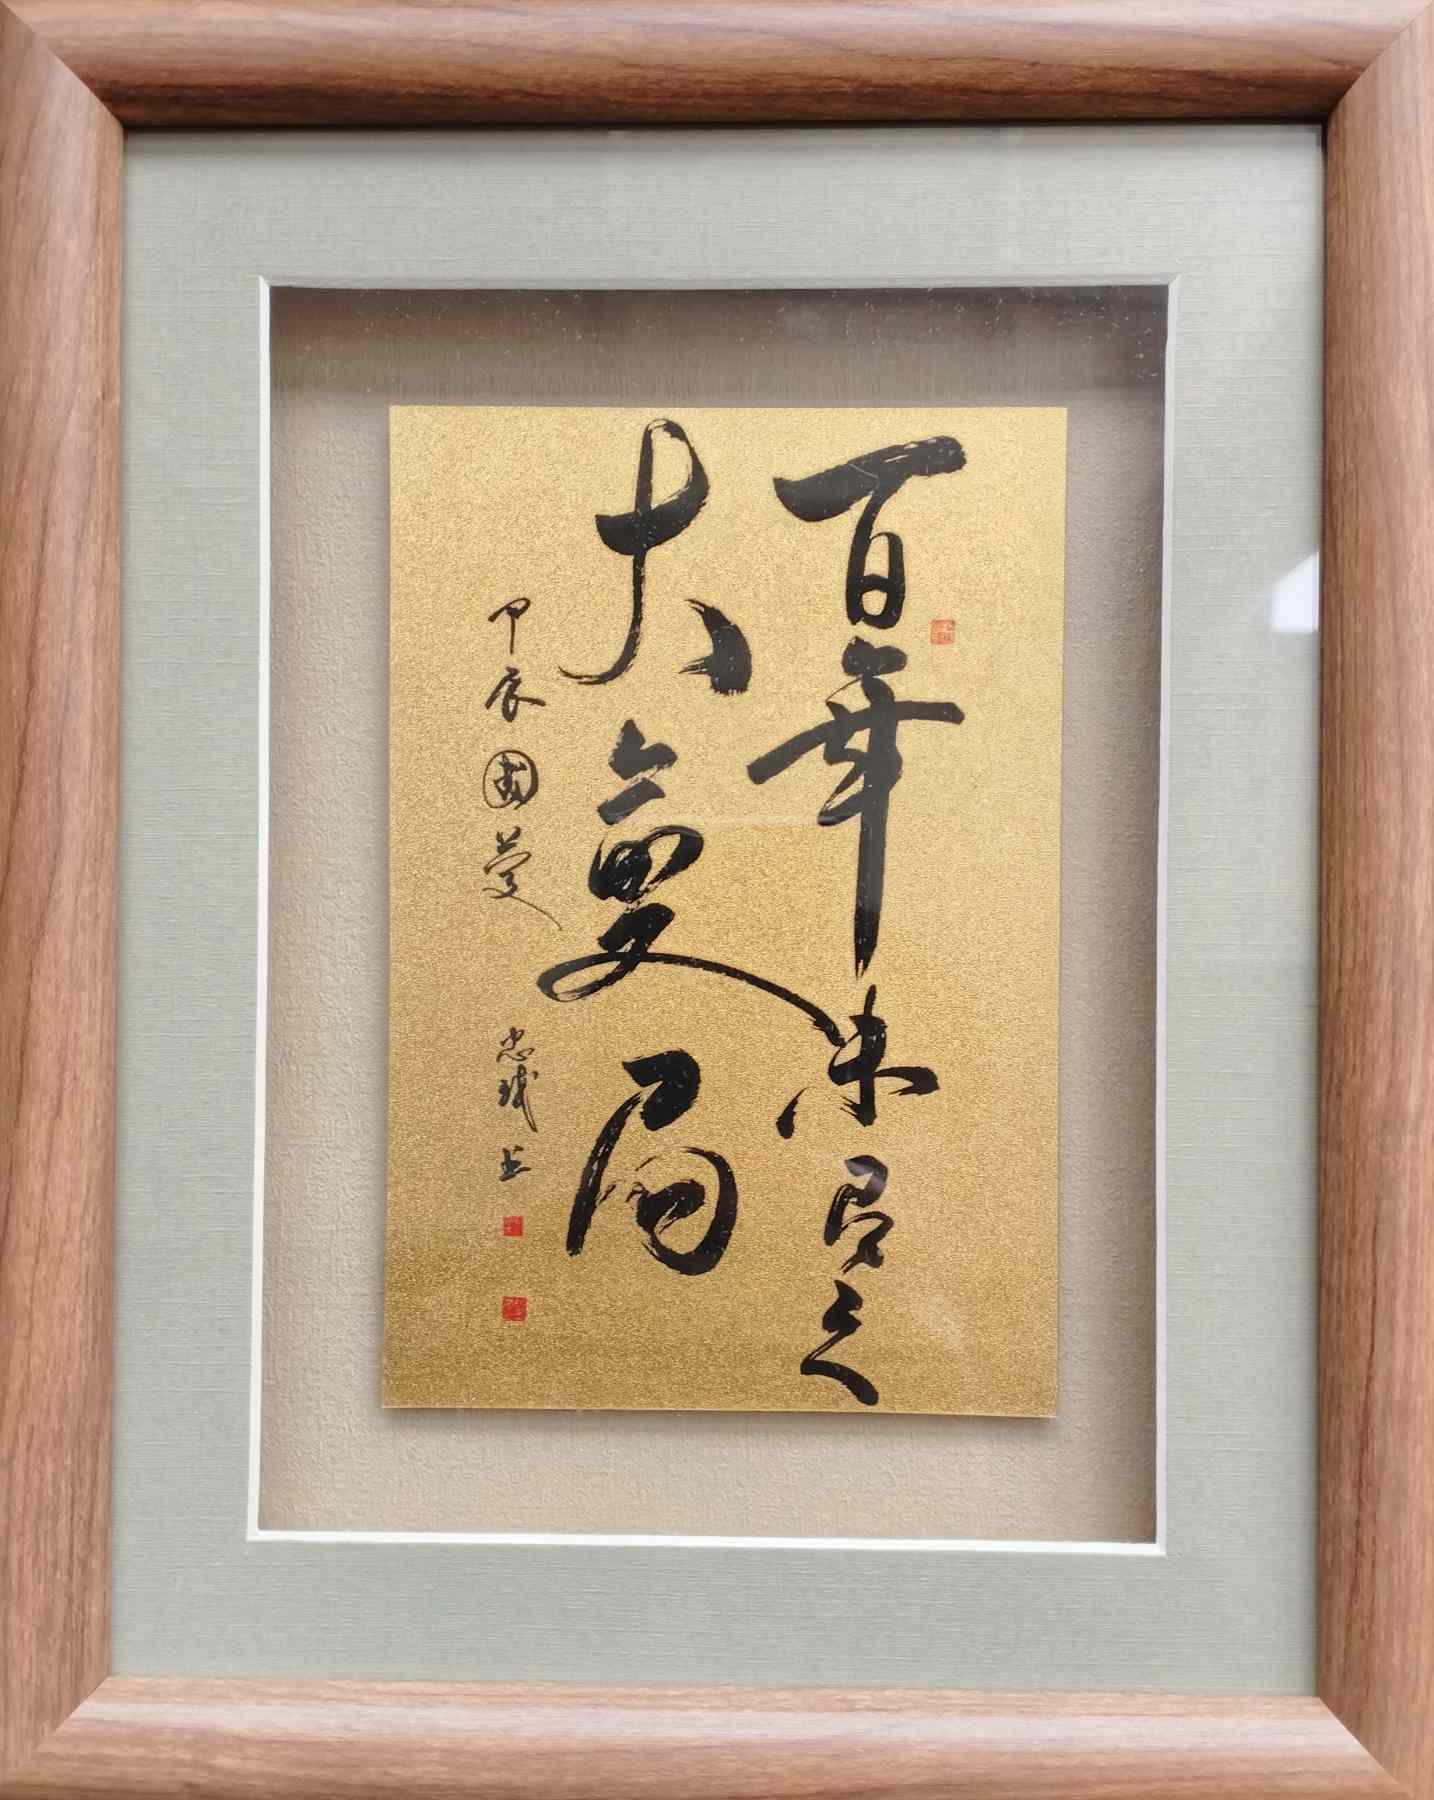 百年未有之
大变局
甲辰 国 忠诚